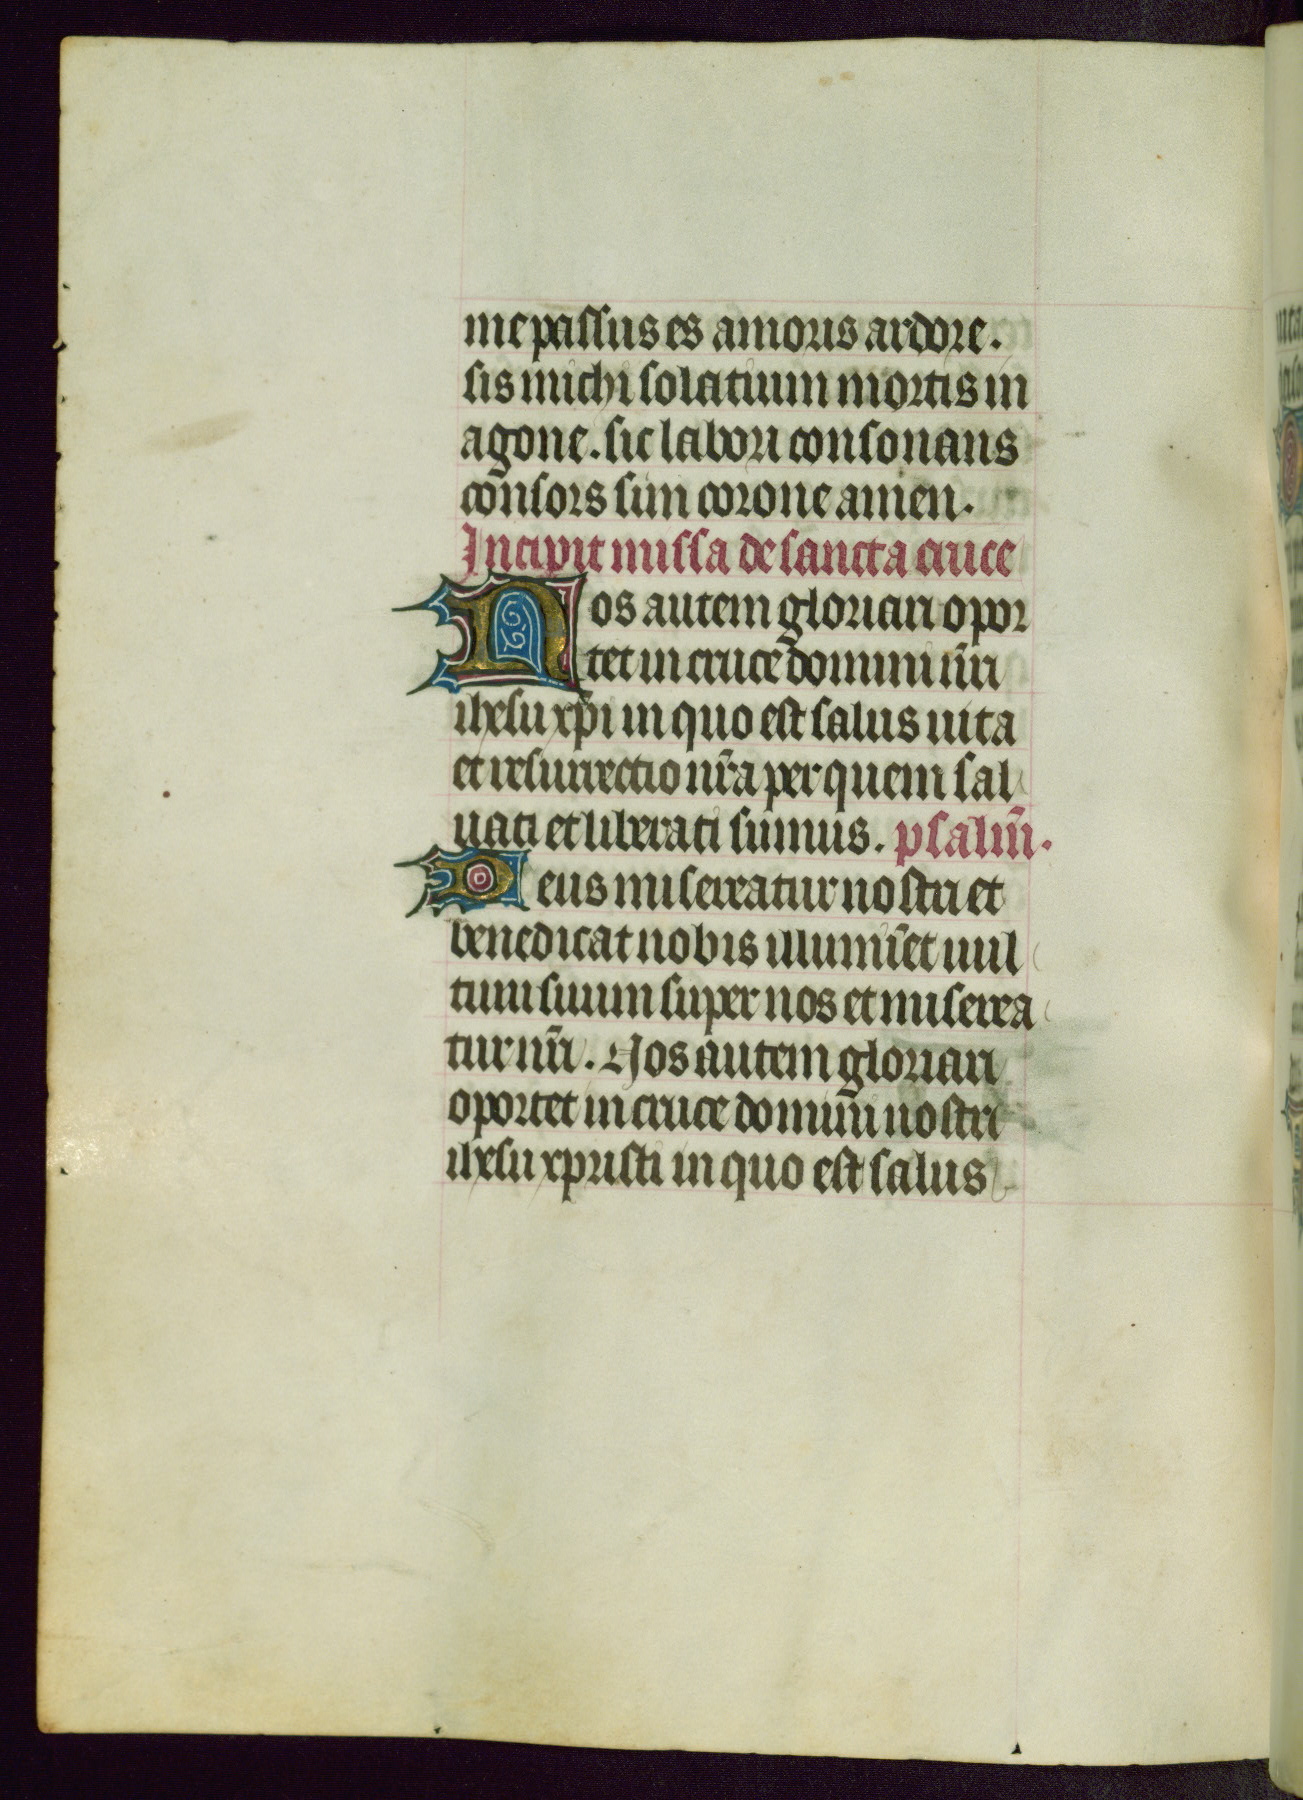 me passus es amoris ardore.
sis michi solatium mortis in
agone. sic labori consonans
consors sim corone amen.
Incipit missa de sancta cruce
Nos autem gloriari opor
tet in cruce domini nr̄i
ihesu xp̄i in quo est salus uita
et resurrectio nr̄a per quem sal
uati et liberati sumus. psalm̄.
Deus misereatur nostri et
benedicat nobis illumīet uul
tum suum super nos et miserea
tur nr̄i. Nos autem gloriari
oportet in cruce domini nostri
ihesu xpristi in quo est salus